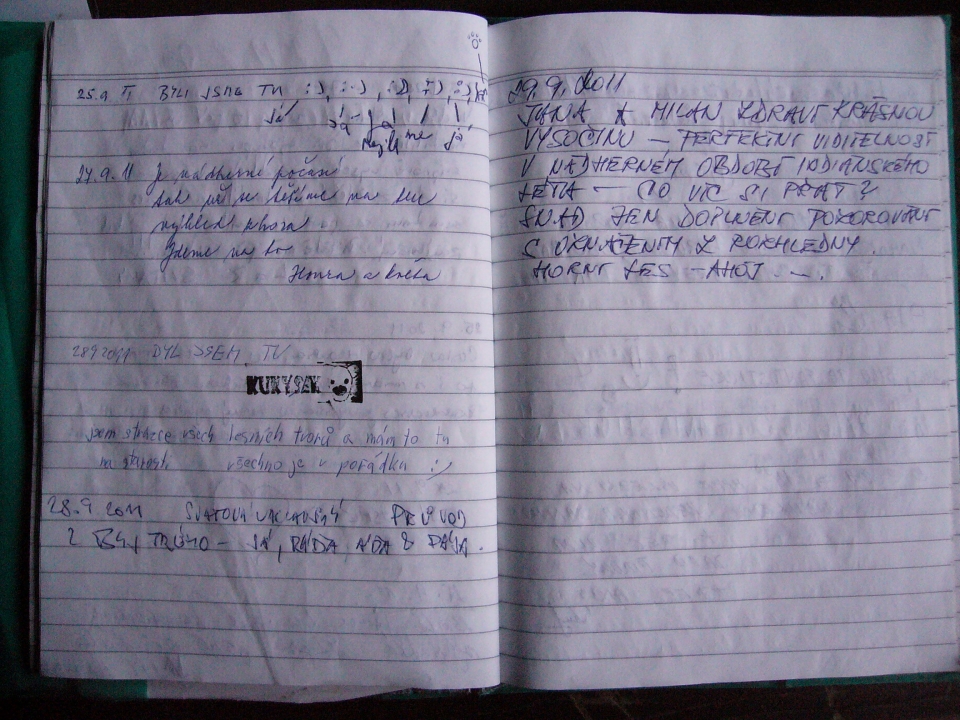 25.9. 11 BYLI JSME TU :), :-), :), :), :),
já já já já
27.9.11 Je nádherné počasí
tak už se těšíme na
výhled shora.
Jdeme na to
Honza a
28.9.2011 BYL JSEM TU
KUKYSEK
jsem strážce všech lesních tvorů a mám to tu
na starosti všechno je v pořádku :)
28.9 2011 SVATOVÁCLAVSKÝ PRŮVOD
JÁ, RÁĎA, AĎA & PÁJA.
29.9.2011
JANA A MILAN ZDRAVÍ KRÁSNOU
VYSOČINU — PERFEKTNÍ VIDITELNOST
V NÁDHERNÉM OBDOBÍ INDIÁNSKÉHO
LÉTA — CO VÍC SI PŘÁT?
SNAD JEN DOPLNĚNÍ POZOROVÁNÍ
S OZNAČENÍM Z ROZHLEDNY.
HORNÍ LES - AHOJ - - .